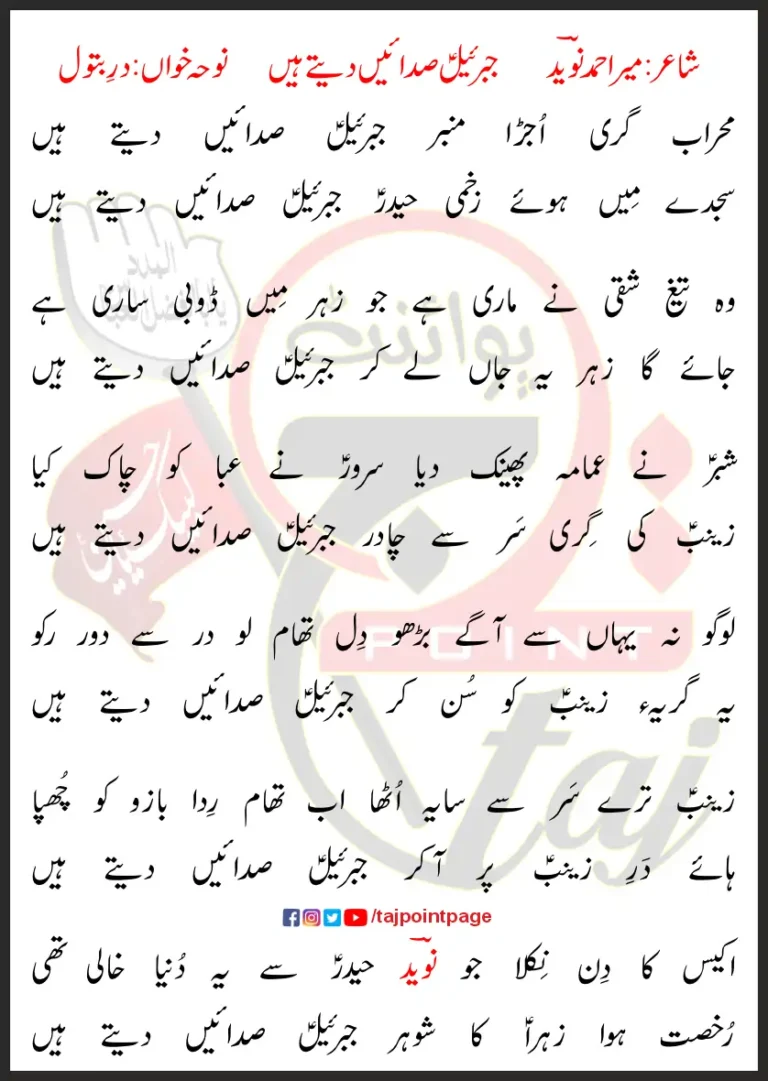 شاعر: میر احمد نویدؔ جبرئیلؑ صدائیں دیتے ہیں نوحہ خواں: درِ بتول
محراب گری اُجڑا منبر جبرئیلؑ صدائیں دیتے ہیں
سجدے مِیں ہوئے زخمی حیدرؑ جبرئیلؑ صدائیں دیتے ہیں
وہ تیغ شقی نے ماری ہے جو زہر مِیں ڈوبی ساری ہے
جائے گا زہر یہ جاں لے کر جبرئیلؑ صدائیں دیتے ہیں
شبرؑ نے عمامہ پھینک دیا سرورؑ نے عبا کو چاک کیا
زینبؑ کی گِری سَر سے چادر جبرئیلؑ صدائیں دیتے ہیں
لوگو نہ یہاں سے آگے بڑھو دِل تھام لو در سے دور رکو
یہ گریہء زینبؑ کو سُن کر جبرئیلؑ صدائیں دیتے ہیں
زینبؑ ترے سَر سے سایہ اُٹھا اب تھام رِدا بازو کو چُھپا
ہائے دَرِ زینبؑ پر آکر جبرئیلؑ صدائیں دیتے ہیں
/tajpointpage
اکیس کا دِن نِکلا جو نویدؔ حیدرؑ سے یہ دُنیا خالی تھی
رُخصت ہوا زہراؑ کا شوہر جبرئیلؑ صدائیں دیتے ہیں
پوائنٹ
POINT
taj